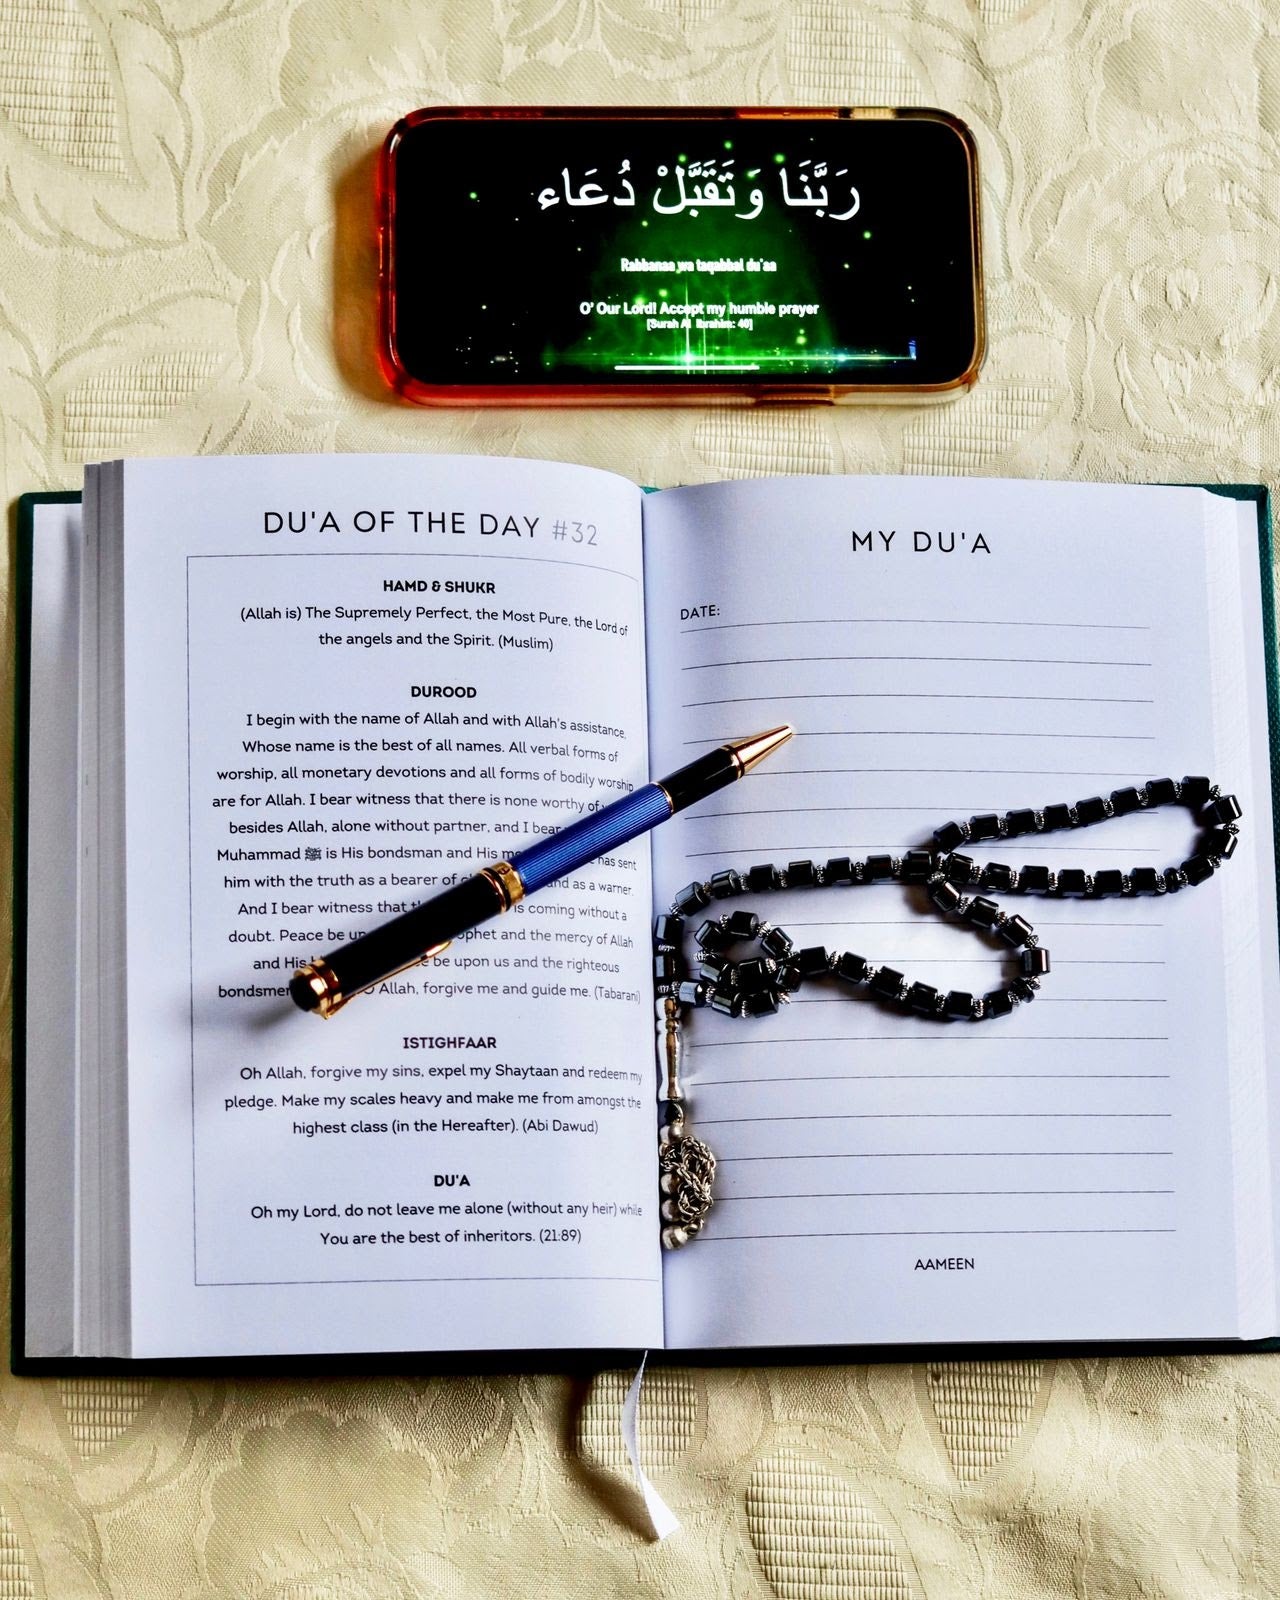 رَبَّنَا وَتَقَبَّلْ دُعَاء
Rabbanaa wa taqabbal du'aa
O' Our Lord! Accept my humble prayer
[Surah Al Ibrahim: 40]
DU'A OF THE DAY #32
HAMD & SHUKR
(Allah is) The Supremely Perfect, the Most Pure, the Lord of
the angels and the Spirit. (Muslim)
DUROOD
I begin with the name of Allah and with Allah's assistance,
Whose name is the best of all names. All verbal forms of
worship, all monetary devotions and all forms of bodily worship
are for Allah. I bear witness that there is none worthy of
besides Allah, alone without partner, and I bear
Muhammad ﷺ is His bondsman and His has sent
him with the truth as a bearer of and as a warner.
And I bear witness that is coming without a
doubt. Peace be and the mercy of Allah
and His be upon us and the righteous
Allah, forgive me and guide me. (Tabarani)
ISTIGHFAAR
Oh Allah, forgive my sins, expel my Shaytaan and redeem my
pledge. Make my scales heavy and make me from amongst the
highest class (in the Hereafter). (Abi Dawud)
DU'A
Oh my Lord, do not leave me alone (without any heir) while
You are the best of inheritors. (21:89)
MY DU'A
DATE:
AAMEEN